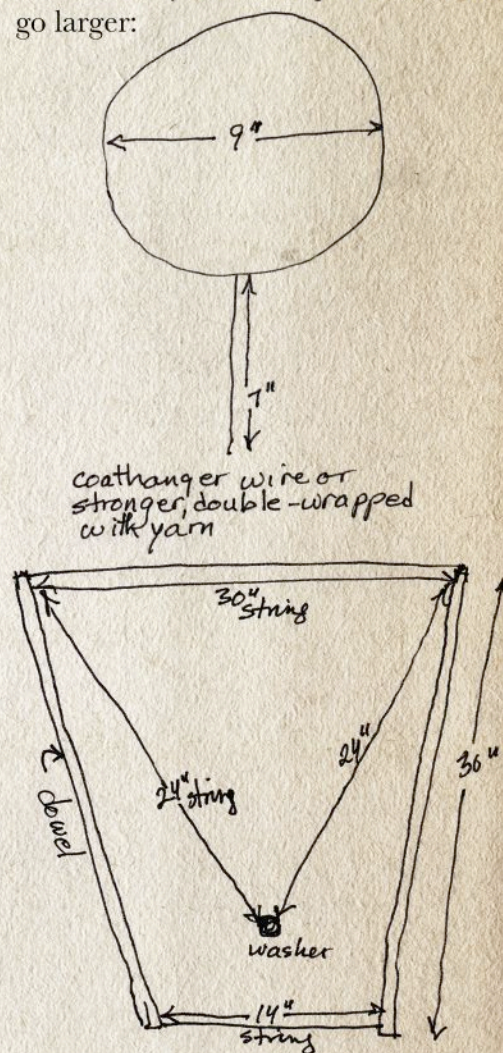 go larger:
9"
7"
coathanger wire or
stronger, double-wrapped
with yarn
30"
string
24" string
24"
36"
dowel
washer
14"
string